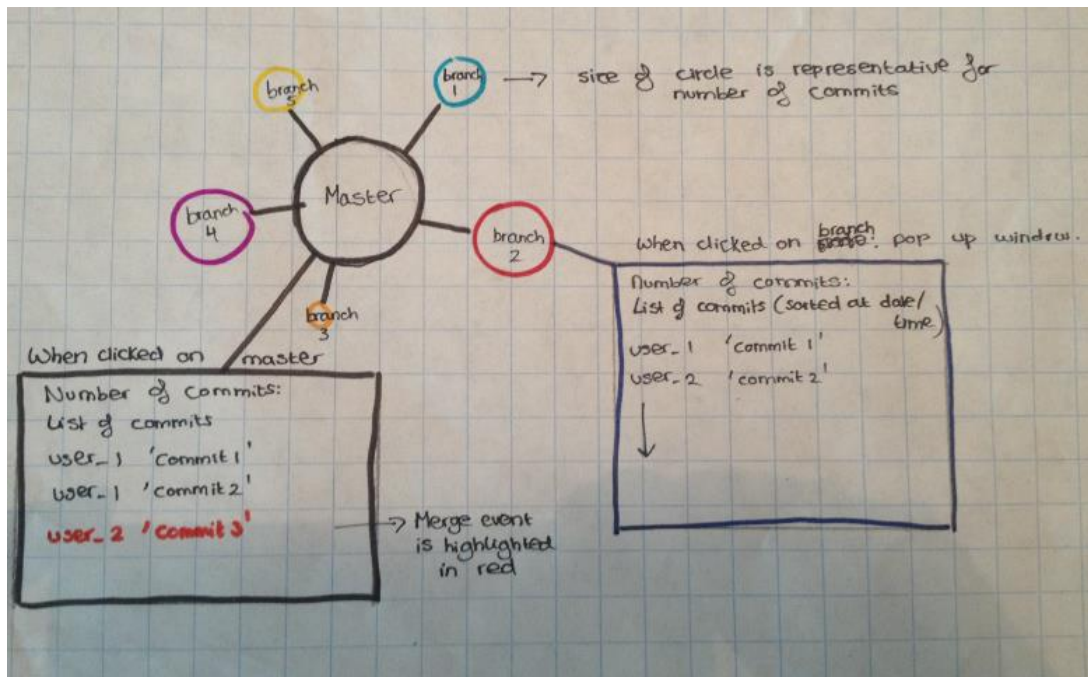 branch
5
branch
1
→ size of circle is representative for
number of commits
Master
branch
4
branch
2
branch
3
When clicked on branch: pop up window.
Number of commits:
List of commits (sorted at date/
time)
user_1 'commit 1'
user_2 'commit 2'
When clicked on master
Number of commits:
List of commits
user_1 'commit 1'
user_1 'commit 2'
user_2 'commit 3'
→ Merge event
is highlighted
in red